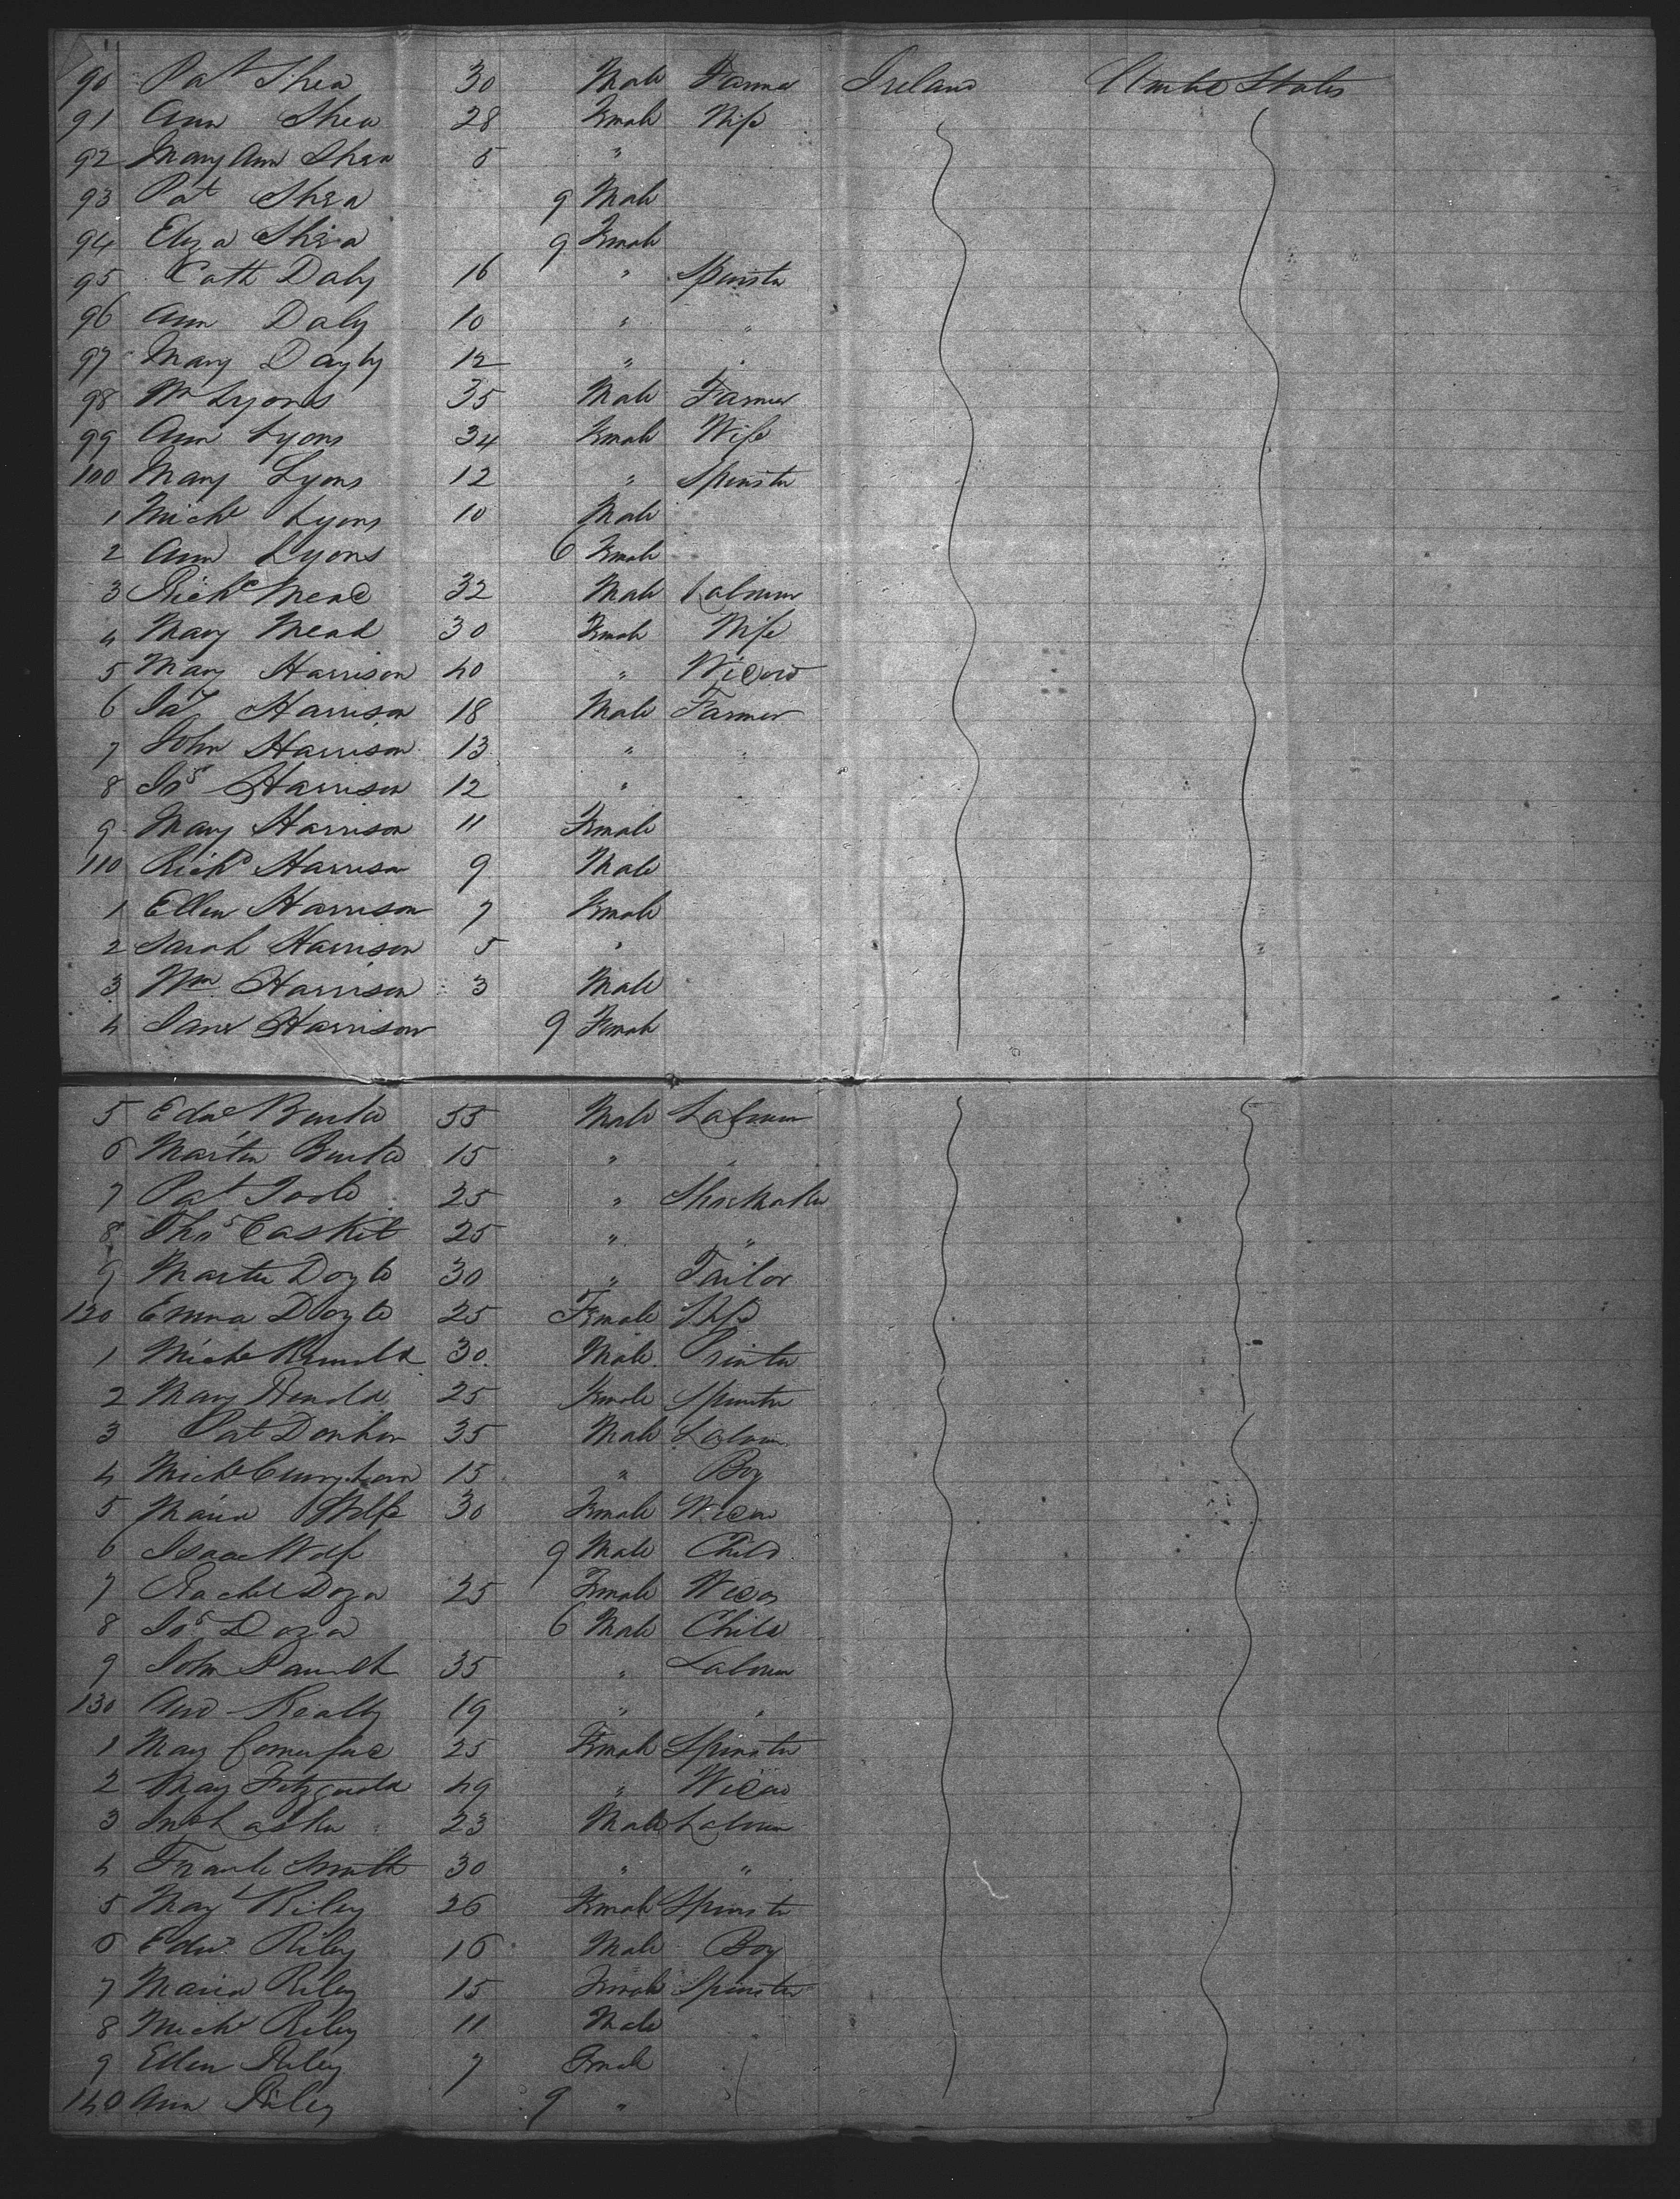 90 Pat Shea 30 Male Farmer Ireland United States
91 Ann Shea 28 Female Wife
92 Mary Ann Shea 5 "
93 Pat Shea 9 Male
94 Eliza Shea 9 Female
95 Cath Daly 16 " Spinster
96 Ann Daly 10 " "
97 Mary Dayly 12 " "
98 Wm Lyons 35 Male Farmer
99 Ann Lyons 34 Female Wife
100 Mary Lyons 12 " Spinster
1 Michl Lyons 10 Male
2 Ann Lyons 6 Female
3 Richd Mead 32 Male Labourer
4 Mary Mead 30 Female Wife
5 Mary Harrison 40 " Widow
6 Jas Harrison 18 Male Farmer
7 John Harrison 13 " "
8 Jos Harrison 12 "
9 Mary Harrison 11 Female
110 Richd Harrison 9 Male
1 Ellen Harrison 7 Female
2 Sarah Harrison 5 "
3 Wm Harrison 3 Male
4 Jane Harrison 9 Female
5 Edwd Burke 55 Male Labourer
6 Martin Burke 15 " "
7 Pat Toole 25 " Shoemaker
8 Thos Casket 25 " "
9 Martin Doyle 30 " Tailor
120 Emma Doyle 25 Female Wife
1 Michl 30 Male Printer
2 Mary 25 Female Spinster
3 Pat 35 Male Labourer
4 Michl 15 " Boy
5 Maria Wolfe 30 Female Widow
6 Isaac Wolf 9 Male Child
7 Rachel Doza 25 Female Widow
8 Jos Doza 6 Male Child
9 John 35 " Labourer
130 And 19 " "
1 Mary 25 Female Spinster
2 Mary Fitzgerald 49 " Widow
3 23 Male Labourer
4 Frank Smith 30 " "
5 Mary Riley 26 Female Spinster
6 Edwd Riley 16 Male Boy
7 Maria Riley 15 Female Spinster
8 Michl Riley 11 Male
9 Ellen Riley 7 Female
140 Ann Riley 9 "